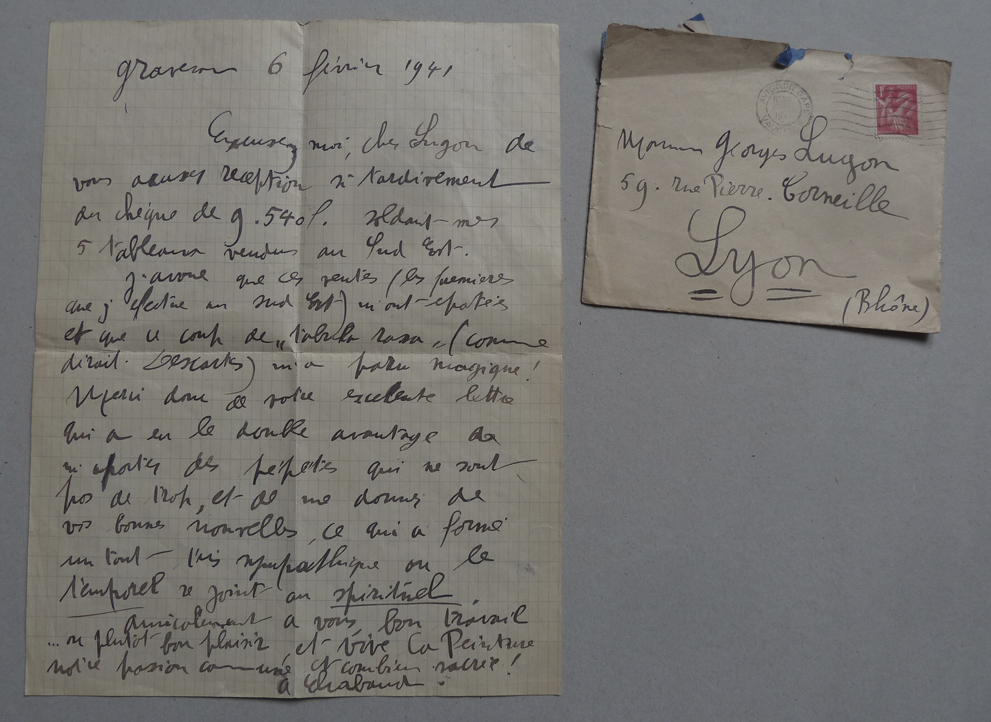 graveson 6 février 1941
Excusez moi, cher Lugon de
vous accuser reception si tardivement
du chèque de 9.540f. soldant mes
5 tableaux vendus au Sud Est.
j'avoue que ces ventes (les premieres
que j'effectue au Sud Est) m'ont épatées
et que ce coup de "tabula rasa" (comme
dirait Descartes) m'a paru magique!
Merci donc de votre excellente lettre
qui a eu le double avantage de
m'aporter des pépètes qui ne sont
pas de trop, et de me donner de
vos bonnes nouvelles, ce qui a formé
un tout très sympathique ou le
temporel se joint au spirituel.
amicalement a vous bon travail
... ou plutôt bon plaisir, et vive la Peinture
notre passion commune et combien sacrée!
a Chabaud.
Monsieur Georges Lugon
59. rue Pierre. Corneille
Lyon
(Rhône)